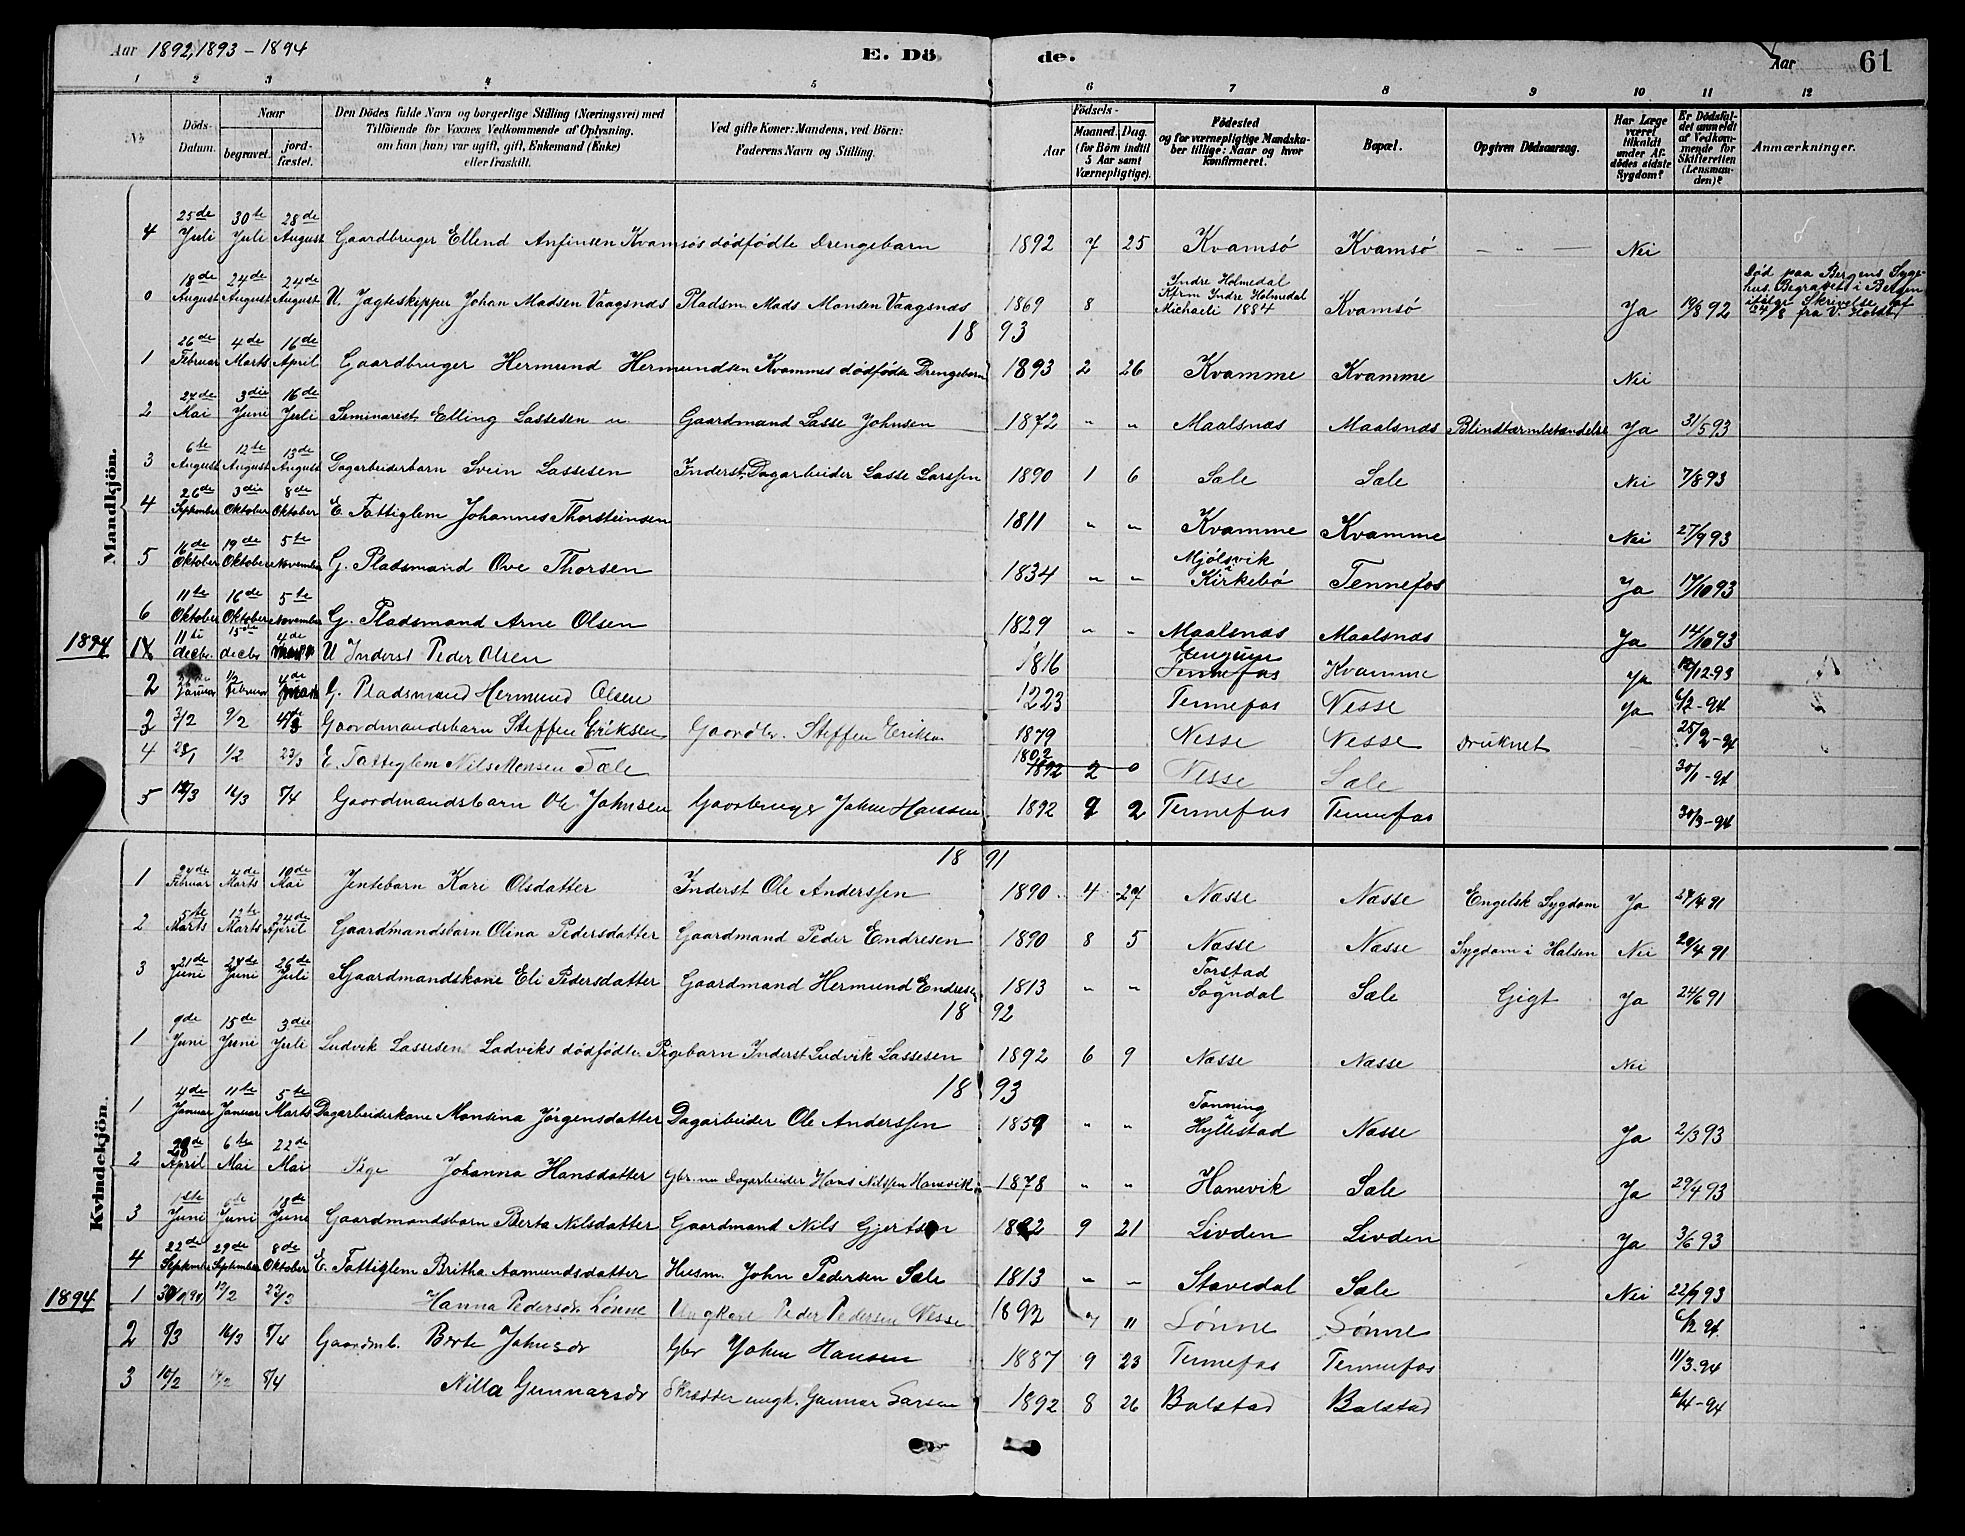 Aar 1892, 1893 - 1894 E. Dö de. Aar 61
1 2 3 4 5 6 7 8 9 10 11 12
No.
Döds-Datum.
Naar
begravet. jordfæstet.
Den Dödes fulde Navn og borgerlige Stilling (Næringsvei) med Tilföiende for Voxnes Vedkommende af Oplysning, om han (hun) var ugift, gift, Enkemand (Enke) eller fraskilt.
Ved gifte Koner: Mandens, ved Börn: Faderens Navn og Stilling.
Födsels-
Aar Maaned. Dag.
(for Börn indtil 5 Aar samt Værnepligtige).
Födested og for værnepligtige Mandskaber tillige: Naar og hvor konfirmeret.
Bopæl.
Opgiven Dödsaarsag.
Har Læge været tilkaldt under Afdödes sidste Sygdom?
Er Dödsfaldet anmeldt af Vedkommende for Skifteretten (Lensmanden)?
Anmærkninger.
Mandkjön.
4 25de Juli 30te Juli 28de August Gaardbruger Ellend Anfinsen Kvamsøs dødfødte Drengebarn 1892 7 25 Kvamsø Kvamsø — " — Nei
0 18de August 24de August 24de August U. Jagteskipper Johan Madsen Vaagsnæs Pladsm. Mads Monsen Vaagsnæs 1869 8 Indre Holmedal Kfrm Indre Holmedal Michaeli 1884 Kvamsø Ja 19/8 92 Død paa Bergens Sygehus. Begravet i Bergen ifølge Skrivelse af 24/8 fra V. Holdt
1893
1 26de Februar 4de Marts 16de April Gaardbruger Hermund Hermundsen Kvammes dødfødte Drengebarn 1893 2 26 Kvamme Kvamme Nei
2 27de Mai 3die Juni 16de Juli Seminarist Elling Lassesen u. Gaardmand Lasse Johnsen 1872 " " Maalsnæs Maalsnæs Blindtarmbetændelse Ja 31/5 93
3 6te August 12te August 13de August Dagarbeiderbarn Svein Lassesen Inderst, Dagarbeider Lasse Larssen 1890 1 6 Sæle Sæle Nei 7/8 93
4 26de September 3die Oktober 8de Oktober E. Fattiglem Johannes Thorsteinsen 1811 " " Kvamme Kvamme Nei 27/9 93
5 16de Oktober 19de Oktober 5te November G. Pladsmand Ove Thorsen 1834 " " Mjølsvik i Kirkebø Tennefos Ja 17/10 93
6 11te Oktober 16de Oktober 5te November G. Pladsmand Arne Olsen 1829 " " Maalsnæs Maalsnæs Ja 14/10 93
1894 1 11te decbr. 15de decbr 4de U Inderst Peder Olsen 1816 Tennefos Kvamme Ja 12/12-93
2 Januar 1/2 Februar 4de G. Pladsmand Hermund Olsen 1223 Tennefos Nesse Ja 6/2-94
3 3/2 9/2 4/3 Gaardmandsbarn Steffen Eriksen Gaardbr. Steffen Eriksen 1879 Nesse Nesse druknet 25/2-94
4 28/1 1/2 23/3 E. Fattiglem Nils Monsen Sæle 1802 1892 2 0 Nesse Sæle 30/1-94
5 12/3 16/3 8/4 Gaardmandsbarn Ole Johnsen Gaarbruger Johne Hanssen 1892 9 2 Tennefos Tennefos 30/3-94
Kvindekjön.
1891
1 24de Februar 4de Marts 10de Mai Jentebarn Kari Olsdatter Inderst Ole Anderssen 1890 4 27 Næsse Næsse Engelsk Sygdom Ja 27/4 91
2 5te Marts 12te Marts 24de April Gaardmandsbarn Olina Pedersdatter Gaardmand Peder Endresen 1890 8 5 Næsse Næsse Sygdom i Halsen Nei 20/4 91
3 21de Juni 24de Juni 26de Juli Gaardmandskone Eli Pedersdatter Gaardmand Hermund Endresen 1813 " " Torstad Sogndal Sæle Gigt Ja 24/6 91
1892
1 9de Juni 15de Juni 3die Juli Ludvik Lassesen Ladviks dødfødte Pigebarn Inderst Ludvik Lassesen 1892 6 9 Næsse Næsse Nei
1893
1 4de Januar 11te Januar 5te Marts Dagarbeiderkone Monsina Jørgensdatter Dagarbeider Ole Anderssen 1859 " " Tonning i Hyllestad Næsse Ja 2/3 93
2 28de April 6te Mai 22de Mai Pige Johanna Hansdatter Gbr. nu Dagarbeider Hans Nilssen Hanevik 1878 " " Hanevik Sæle Ja 29/4 93
3 1ste Juni 6te Juni 18de Juni Gaardmandsbarn Berta Nilsdatter Gaardmand Nils Gjertsen 1892 9 21 Livden Livden Ja 3/6 93
4 22de September 29de September 8de Oktober E. Fattiglem Britha Aamundsdatter Husm. John Pedersen Sæle 1813 " " Stavedal Sæle Nei 22/9 93
1894 1 12/2 23/3 Hanna Pedersdr Lønne Ungkarl Peder Pedersen Nesse 1892 7 11 Sønne Sønne 6/2 94
2 8/3 16/3 8/4 Gaardmb. Berte Johnsdr Gbr John Hansen 1887 9 23 Tennefos Tennefos 11/3-94
3 10/2 14/2 8/4 Nilla Gunnarsdr Skrædder ungk. Gunnar Larsen 1892 8 26 Bolstad Bolstad 6/4-94